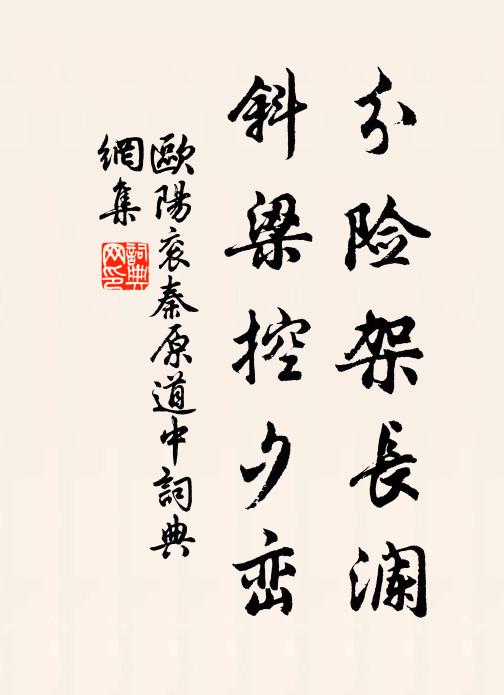 分险架長澜
斜梁控夕峦
歐陽衮秦原道中詞典
網集
詞典
网印